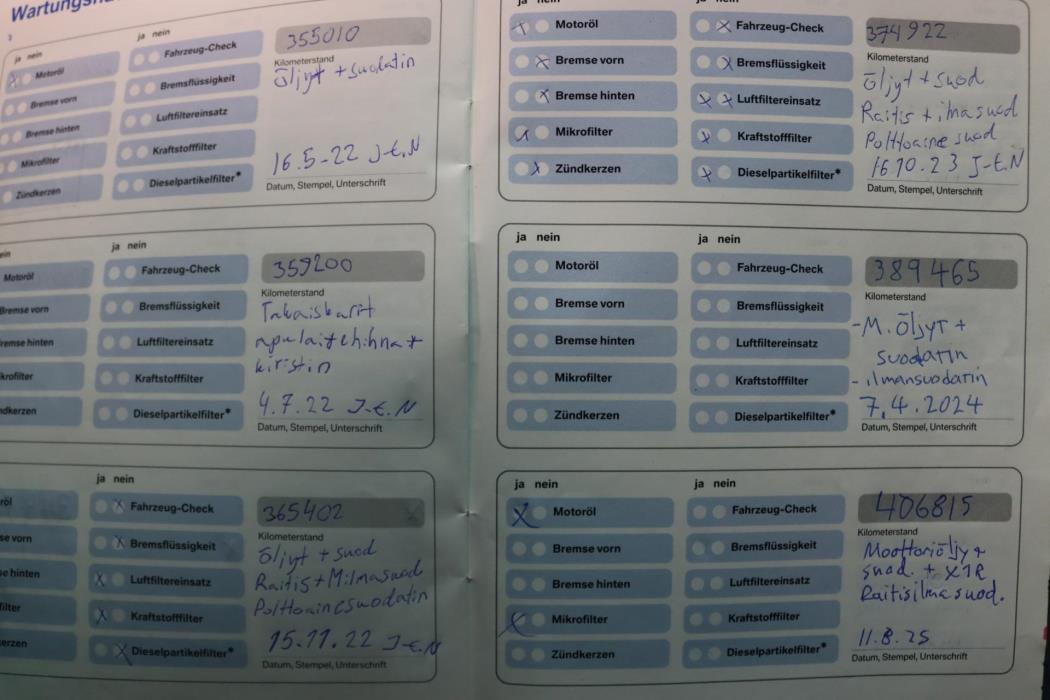 Wartungsn
ja nein
ja nein
Motoröl
Fahrzeug-Check
355010
Bremse vorn
Bremsflüssigkeit
Kilometerstand
Öljyt + suodatin
Bremse hinten
Luftfiltereinsatz
Mikrofilter
Kraftstofffilter
16.5-22 J-E.N
Zündkerzen
Dieselpartikelfilter*
Datum, Stempel, Unterschrift
ein
ja nein
Motoröl
Fahrzeug-Check
359200
Bremse vorn
Bremsflüssigkeit
Kilometerstand
Takaiskarit
remse hinten
Luftfiltereinsatz
apulaitehihnat
krofilter
Kraftstofffilter
kiristin
4.7.22 J-E.N
dkerzen
Dieselpartikelfilter*
Datum, Stempel, Unterschrift
ja nein
röl
Fahrzeug-Check
365402
se vorn
Bremsflüssigkeit
Kilometerstand
Öljyt + suod
e hinten
Luftfiltereinsatz
Raitis + M ilmasuod
filter
Kraftstofffilter
Polttoainesuodatin
15.11.22 J-E.N
erzen
Dieselpartikelfilter*
Datum, Stempel, Unterschrift
ja nein
ja nein
Motoröl
Fahrzeug-Check
374922
Bremse vorn
Bremsflüssigkeit
Kilometerstand
Öljyt + suod
Bremse hinten
Luftfiltereinsatz
Raitis + ilmasuod
Mikrofilter
Kraftstofffilter
Polttoaine suod
16.10.23 J-E.N
Zündkerzen
Dieselpartikelfilter*
Datum, Stempel, Unterschrift
ja nein
ja nein
Motoröl
Fahrzeug-Check
389465
Bremse vorn
Bremsflüssigkeit
Kilometerstand
- M. Öljyt +
Bremse hinten
Luftfiltereinsatz
suodatin
Mikrofilter
Kraftstofffilter
- ilmansuodatin
7.4.2024
Zündkerzen
Dieselpartikelfilter*
Datum, Stempel, Unterschrift
ja nein
ja nein
Motoröl
Fahrzeug-Check
406815
Bremse vorn
Bremsflüssigkeit
Kilometerstand
Moottoriöljy +
Bremse hinten
Luftfiltereinsatz
suod. + X1R
Raitisilmasuod.
Mikrofilter
Kraftstofffilter
11.8.25
Zündkerzen
Dieselpartikelfilter*
Datum, Stempel, Unterschrift